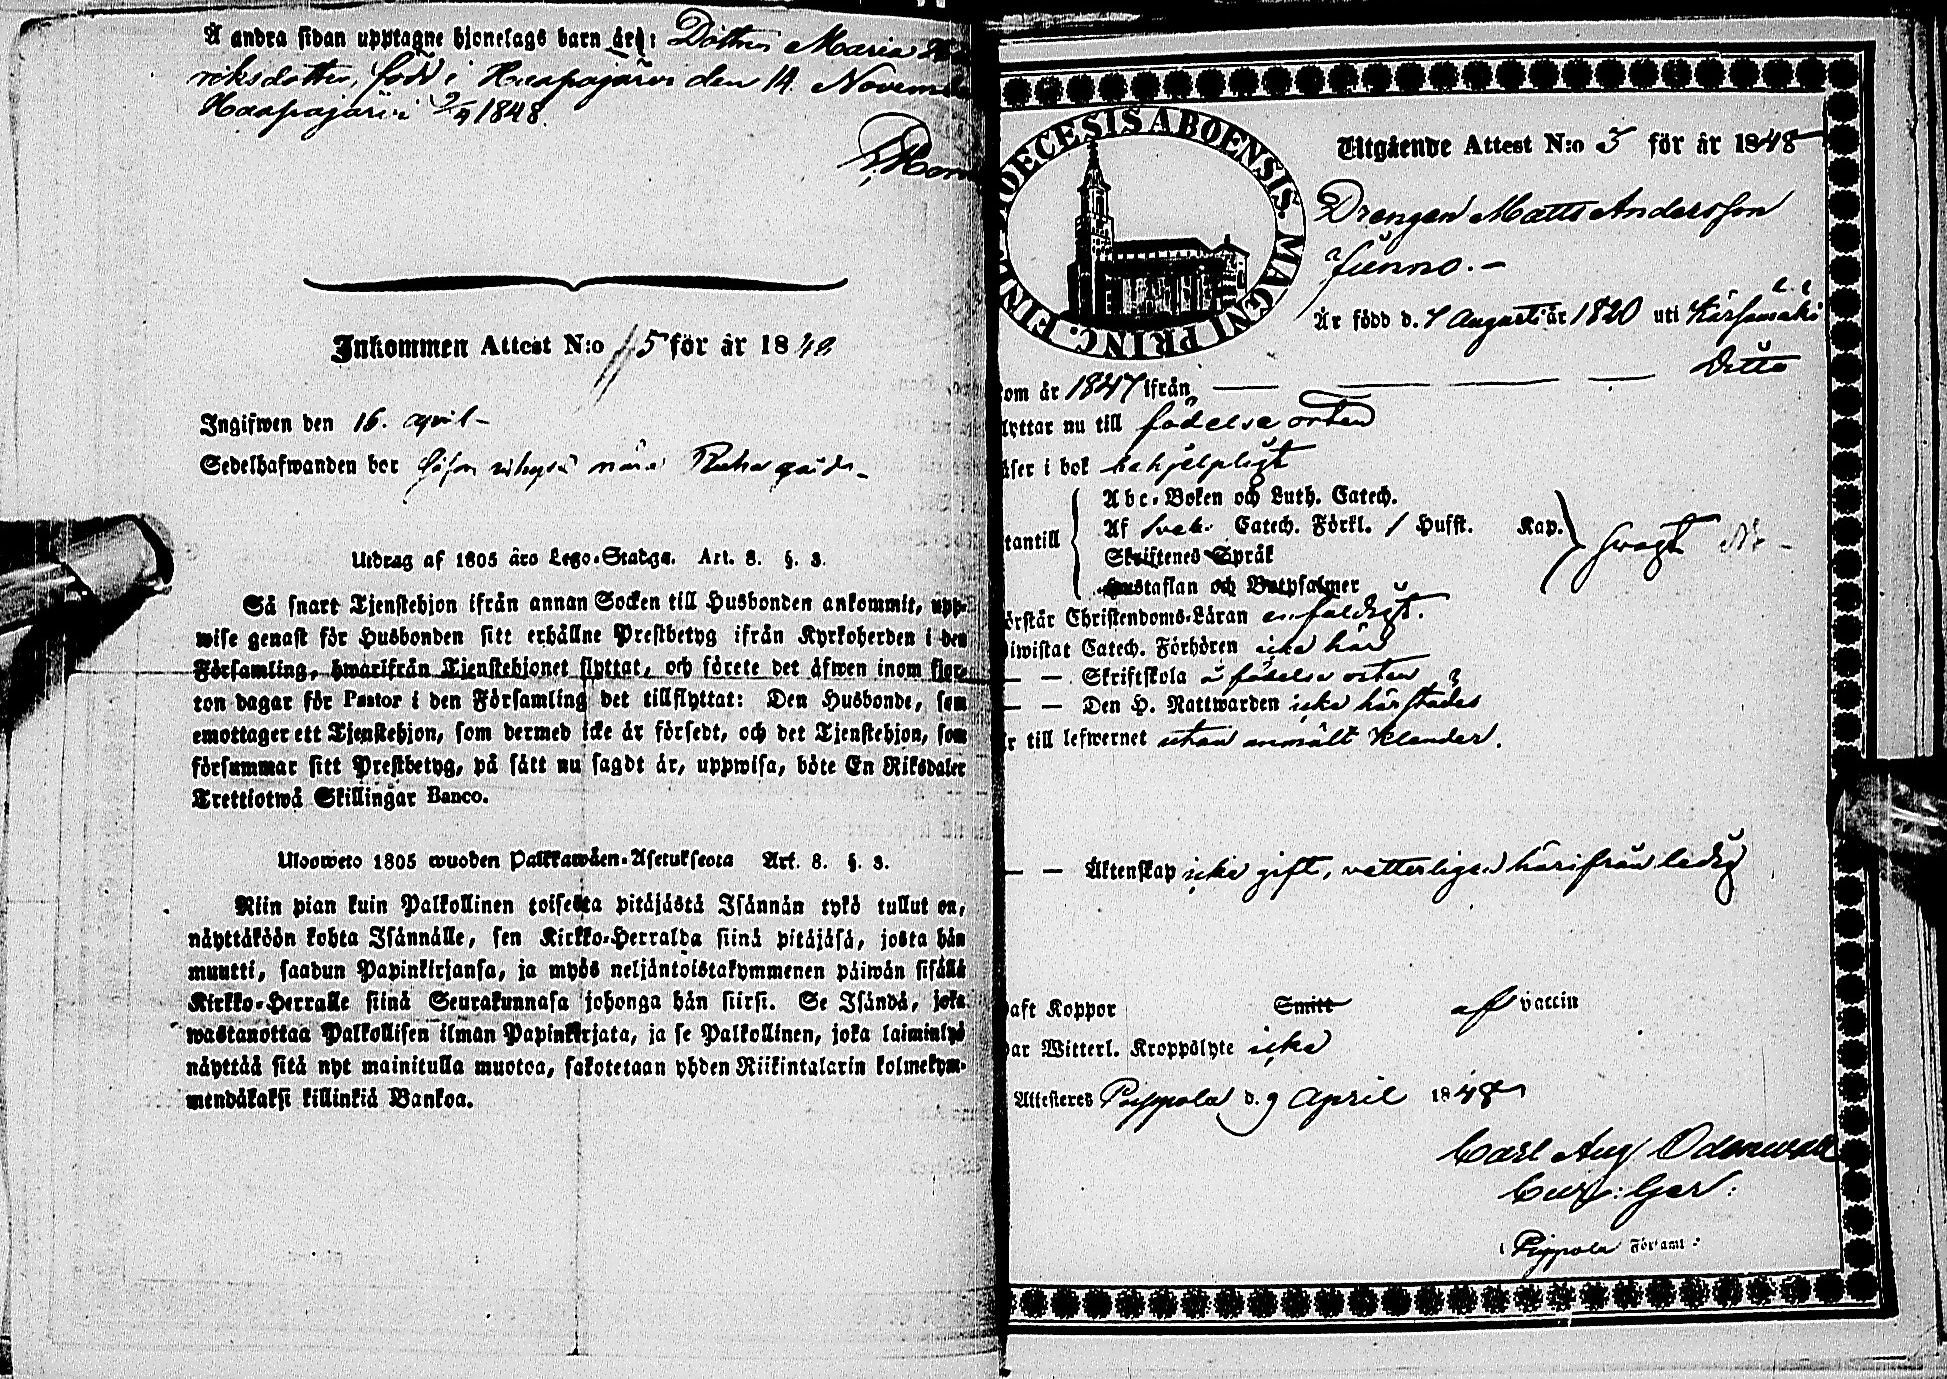 Å andra sidan upptagne hjonelags barn äro: Dottren Maria
riksdotter, född i Haapajärvi den 14. Novem
Haapajärvi 2/4 1848.
Inkommen Attest N:o 15 för år 1848
Ingifwen den 16. april
Sedelhafwanden bor
Utdrag af 1805 års Lego-Stadga. Art. 8. §. 3.
Så snart Tjenstehjon ifrån annan Socken till Husbonden ankommit, upp-
wise genast för Husbonden sitt erhållne Prestbetyg ifrån Kyrkoherden i den
Församling, hwarifrån Tjenstehjonet flyttat, och förete det äfwen inom fjor-
ton dagar för Pastor i den Församling det tillflyttat: Den Husbonde, som
emottager ett Tjenstehjon, som dermed icke är försedt, och det Tjenstehjon, som
försummar sitt Prestbetyg, på sätt nu sagdt är, uppwisa, böte En Riksdaler
Trettiotwå Skillingar Banco.
Ulosweto 1805 wuoden Palkkawäen-Asetuksesta Art. 8. §. 3.
Niin pian kuin Palkollinen toisesta pitäjästä Isännän tykö tullut on,
näyttäköön kohta Isännälle, sen Kirkko-Herralda siinä pitäjäsä, josta hän
muutti, saadun Papinkirjansa, ja myös neljäntoistakymmenen päiwän sisällä
Kirkko-Herralle siinä Seurakunnasa johonga hän siirsi. Se Isändä, joka
wastanottaa Palkollisen ilman Papinkirjata, ja se Palkollinen, joka laiminlyö
näyttää sitä nyt mainitulla muotoa, sakotetaan yhden Riikintalarin kolmekym-
mendäkaksi killinkiä Bankoa.
DIOECESIS ABOENSIS. MAGNI PRINC. FINL.
Utgående Attest N:o 3 för år 1848
Drengen Matts Andersson
Junno.
Är född d. 7 Augusti år 1820 uti Kärsämäki
kom år 1847 ifrån — — — — Ditto
flyttar nu till födelse orten
läser i bok behjelpligt
Abc-Boken och Luth. Catech.
utantill Af Sveb. Catech. Förkl. / Husst. Kap. svagt
Skriftenes Språk
Hustaflan och Botpsalmer
förstår Christendoms-Läran enfaldigt.
Biwistat Catech. Förhören icke här
— — Skriftskola i födelse orten
— — Den H. Nattwarden icke härstädes
Är till lefwernet utan anmält klander.
— — Äktenskap icke gift, vetterligen härifrån ledig
Haft Koppor Smitt af vaccin
Har Witterl. Kroppslyte icke
Attesteres Pippola d. 9 April 1848
Carl Aug Odenwall
i Pippola Församl: